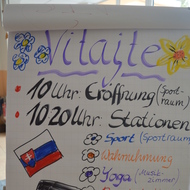 Vitajte
10 Uhr: Eröffnung (Sport-
raum)
10 20 Uhr: Stationen
Sport (Sportraum
Wahrnehmung
Yoga (Musik-
zimmer)